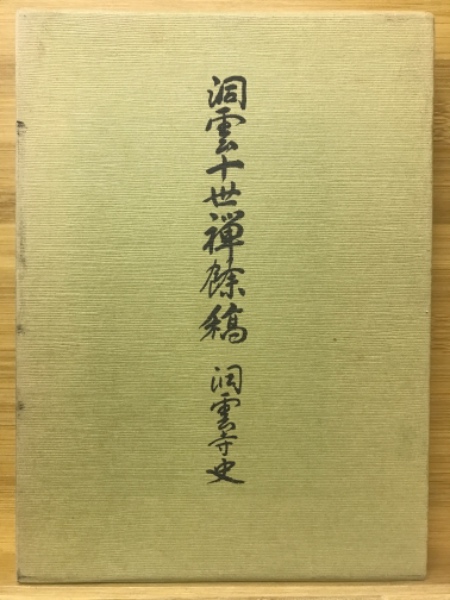 洞雲十世禅餘稿 洞雲寺史